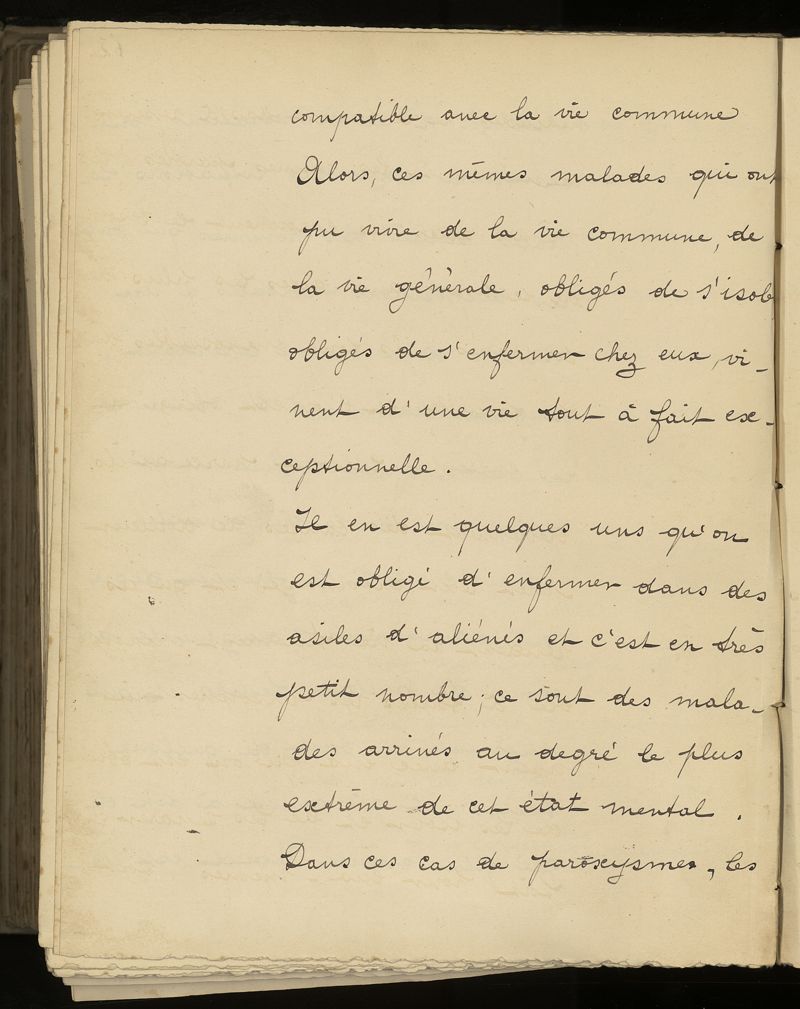 compatible avec la vie commune
Alors, ces mêmes malades qui ont
pu vivre de la vie commune, de
la vie générale, obligés de s'isole
obligés de s'enfermer chez eux, vi-
vent d'une vie tout à fait ex-
ceptionnelle.
Il en est quelques uns qu'on
est obligé d'enfermer dans des
asiles d'aliénés et c'est en très
petit nombre; ce sont des mala-
des arrivés au degré le plus
extrême de cet état mental.
Dans ces cas de paroxysmes, les